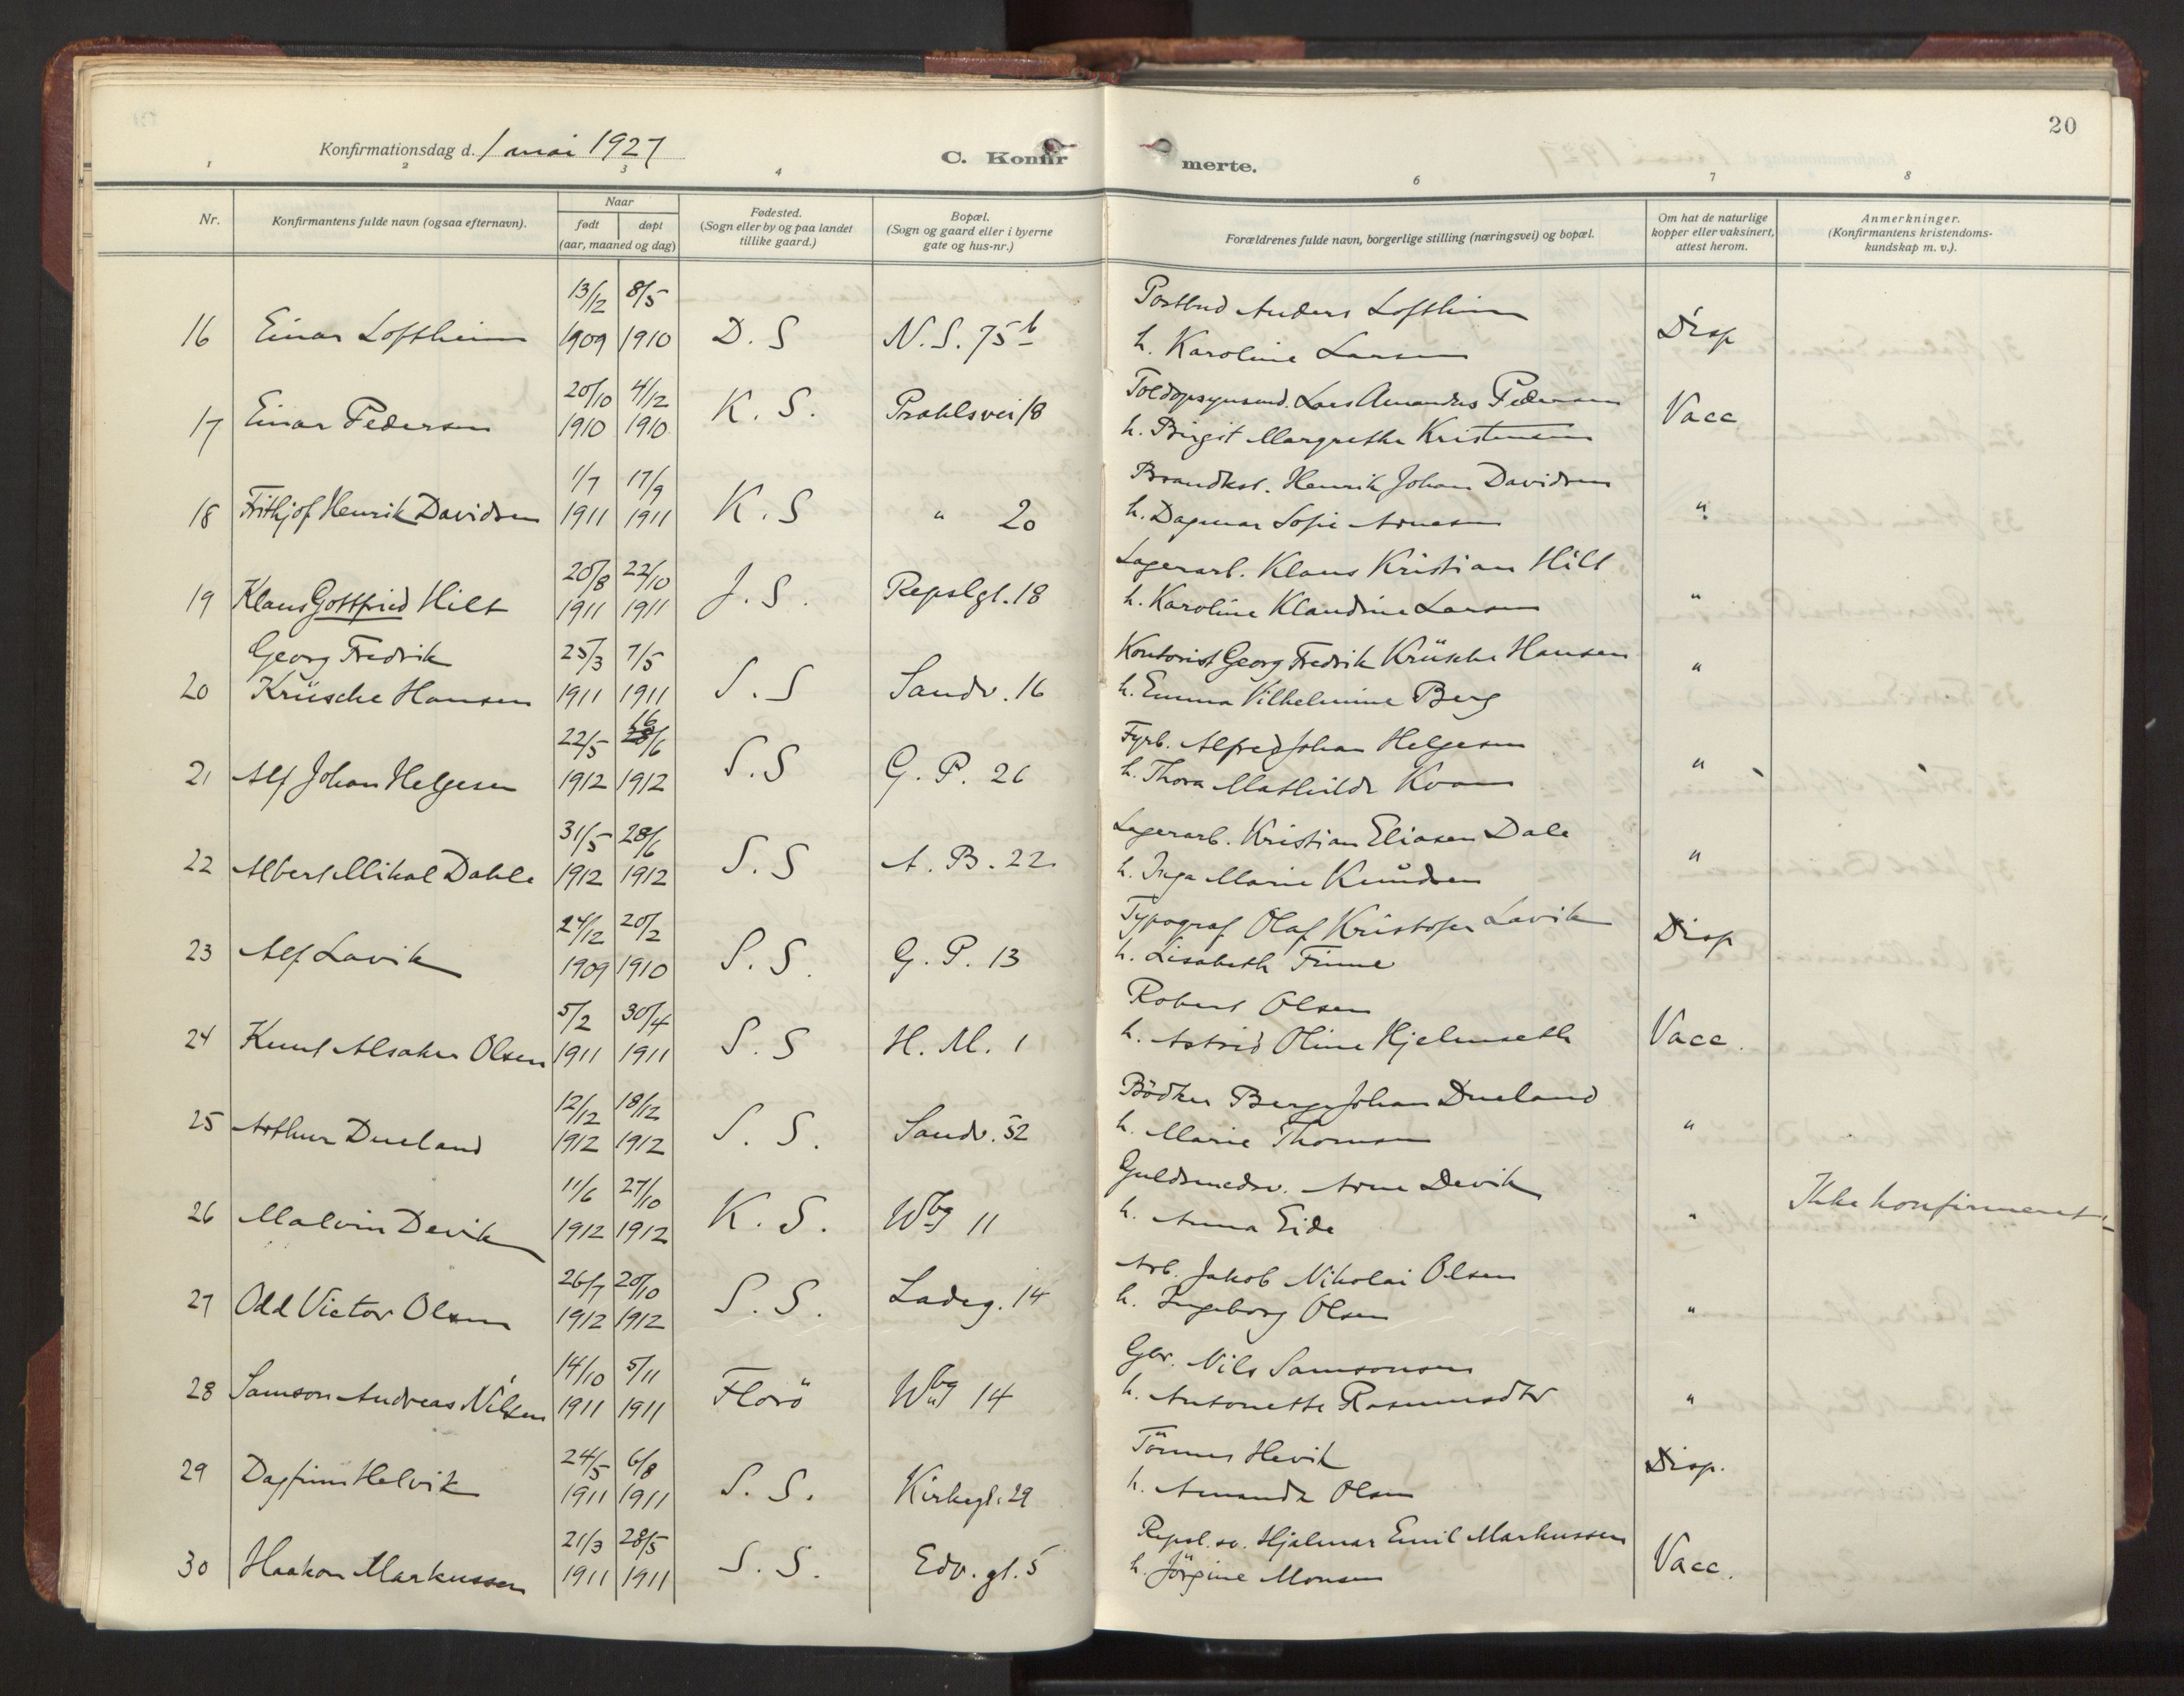 20
Konfirmationsdag d. 1 mai 1927
C. Konfirmerte.
1 2 3 4 6 7 8
Nr.
Konfirmantens fulde navn (ogsaa efternavn).
Naar
født døpt
(aar, maaned og dag)
Fødested.
(Sogn eller by og paa landet
tillike gaard.)
Bopæl.
(Sogn og gaard eller i byerne
gate og hus-nr.)
Forældrenes fulde navn, borgerlige stilling (næringsvei) og bopæl.
Om hat de naturlige
kopper eller vaksinert,
attest herom.
Anmerkninger.
(Konfirmantens kristendoms-
kundskap m. v.).
13/12 8/5 Postbud Anders Loftheim
16 Einar Loftheim 1909 1910 D. S N. S. 75 b h. Karoline Larsen Disp
20/10 4/12 Toldopsynsmd. Lars Amandus Pedersen
17 Einar Pedersen 1910 1910 K. S. Prahlsvei 18 h. Birgit Margrethe Kristensen Vacc
1/7 17/9 Brandkst. Henrik Johan Davidsen
18 Frithjof Henrik Davidsen 1911 1911 K. S " 20 h. Dagmar Sofie Arnesen "
20/8 22/10 Lagerarb. Klaus Kristian Hilt
19 Klaus Gottfried Hilt 1911 1911 J. S. Repslgt. 18 h. Karoline Klaudine Larsen "
Georg Fredrik 25/3 7/5 Kontorist Georg Fredrik Krüsche Hansen
20 Krüsche Hansen 1911 1911 S. S Sandv. 16 h. Emma Vilhelmine Berg "
22/5 16/6 Fyrb. Alfred Johan Helgesen
21 Alf Johan Helgesen 1912 1912 S. S G. P. 26 h. Thora Mathilde Kvam "
31/5 28/6 Lagerarb. Kristian Eliasen Dale
22 Albert Mikal Dahle 1912 1912 S. S A. B. 22 h. Inga Marie Knudsen "
24/12 20/2 Typograf Olaf Kristofer Lavik
23 Alf Lavik 1909 1910 S. S. G. P. 13 h. Lisabeth Finne Disp
5/2 30/4 Robert Olsen
24 Knut Alsaker Olsen 1911 1911 S. S H. M. 1 h. Astrid Oline Hjelmseth Vacc.
12/12 18/12 Bödker Berge Johan Dueland
25 Arthur Dueland 1912 1912 S. S. Sandv. 52 h. Marie Thomsen "
11/6 27/10 Guldsmedsv. Arne Devik
26 Malvin Devik 1912 1912 K. S. Wbg 11 h. Anna Eide " Ikke konfirmeret
26/7 20/10 Arb. Jakob Nikolai Olsen
27 Odd Victor Olsen 1912 1912 S. S. Ladeg. 14 h. Ingeborg Olsen "
14/10 5/11 Gbr. Nils Samsonsen
28 Samson Andreas Nilsen 1911 1911 Florö Wbg 14 h. Antonette Rasmusdtr "
24/5 6/8 Tönnes Hevik
29 Dagfinn Helvik 1911 1911 S. S. Kirkegt. 29 h. Amanda Olsen Disp.
21/3 28/5 Repsl. sv. Hjalmar Emil Markussen
30 Haakon Markussen 1911 1911 S. S. Edv. gt. 5 h. Jörgine Monsen Vacc.